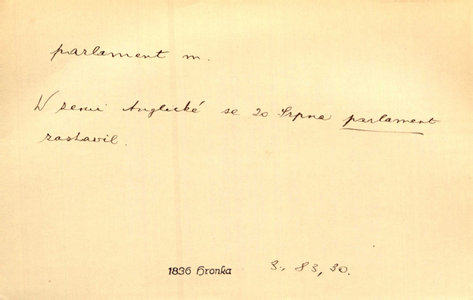 parlament m.
V zemi Anglické se 20 Srpna parlament
zastavil.
1836 Hronka 3., 83, 30.